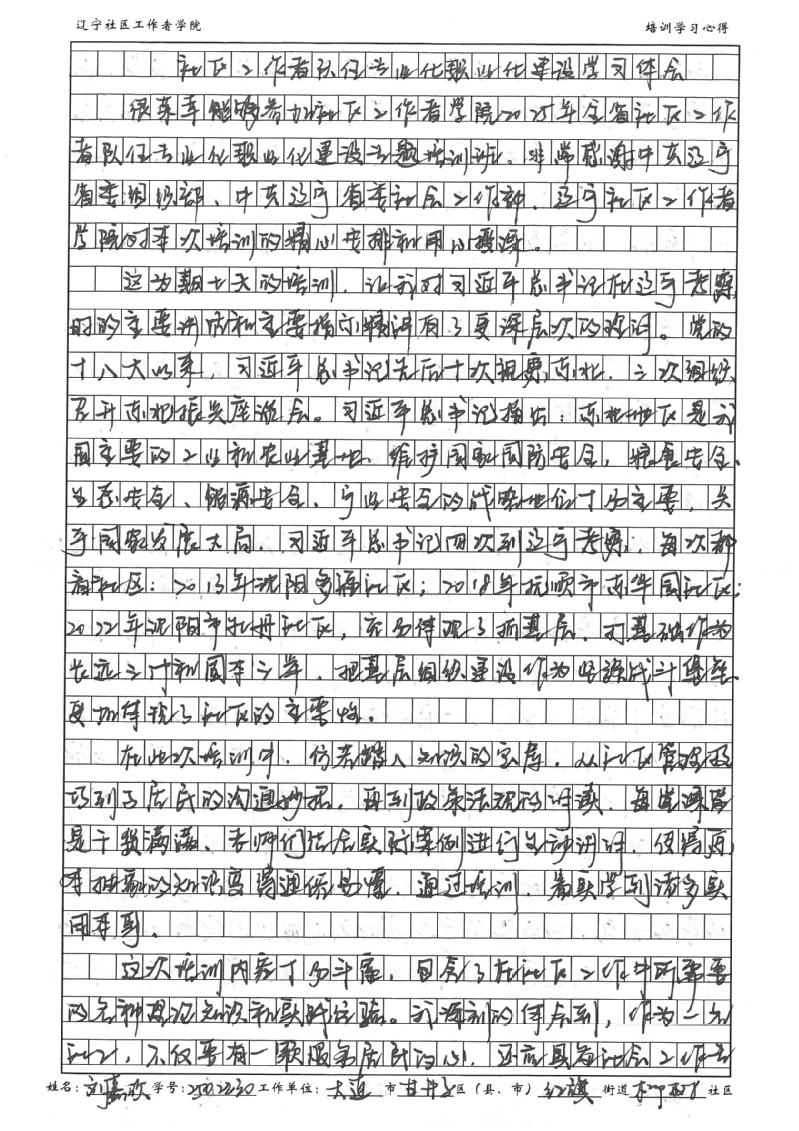 辽宁社区工作者学院 培训学习心得
社区工作者队伍专业化职业化建设学习体会
很荣幸能够参加社区工作者学院2025年全省社区工作
者队伍专业化职业化建设专题培训班。非常感谢中共辽宁
省委组织部、中共辽宁省委社会工作部、辽宁社区工作者
学院对本次培训的精心安排和用心授课。
这为期七天的培训，让我对习近平总书记在辽宁考察
时的重要讲话和重要指示精神有了更深层次的认识。党的
十八大以来，习近平总书记先后十次视察东北，三次组织
召开东北振兴座谈会。习近平总书记指出：东北地区是我
国重要的工业和农业基地，维护国家国防安全，粮食安全、
生态安全、能源安全、产业安全的战略地位十分重要，关
乎国家发展大局。习近平总书记四次到辽宁考察，每次都
看社区：2013年沈阳多福社区；2018年抚顺市东华园社区；
2022年沈阳市牡丹社区，充分体现了抓基层、打基础作为
长远之计和固本之举，把基层组织建设作为坚强战斗堡垒
更加体现了社区的重要性。
在此次培训中，仿若踏入知识的宝库，从社区管理技
巧到与居民的沟通妙招，再到政策法规的讲读，每堂课皆
是干货满满、老师们结合实际案例进行生动讲讲，使得原
本抽象的知识变得通俗易懂，通过培训，着实学到诸多实
用本事。
这次培训内容十分丰富，包含了在社区工作中所需要
的各种理论知识和实践经验。我深刻的体会到，作为一名
社工，不仅要有一颗服务居民的心，还应具备社会工作者
姓名：刘嘉欣 学号： 工作单位：大连市甘井子区（县、市）红旗街道 社区